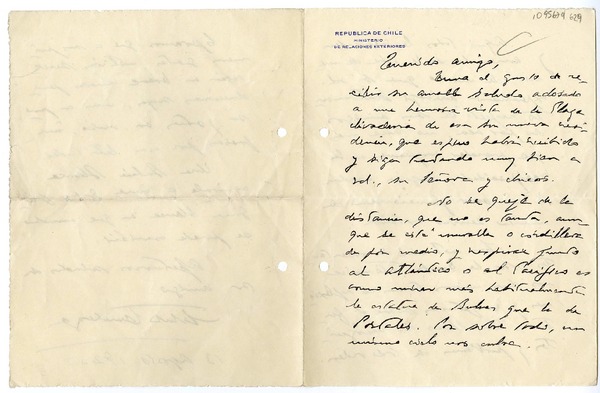 1095679 629
REPUBLICA DE CHILE
MINISTERIO
DE RELACIONES EXTERIORES
Querido amigo,
Tuve el gusto de re-
cibir su amable saludo adosado
a una hermosa vista de la Plaza
de esa su nueva resi-
dencia, que espero habrá recibido
y sigan tratando muy bien a
Ud., su señora y chicos.
No se queje de la
distancia, que no es tanta, aun-
que se esté muralla o cordillera
de por medio, y respirar junto
al Atlántico o al Pacífico es
como mirar más habitualmente
la estatua de Bulnes que la de
Portales. Por sobre todo, un
mismo cielo nos cubre.